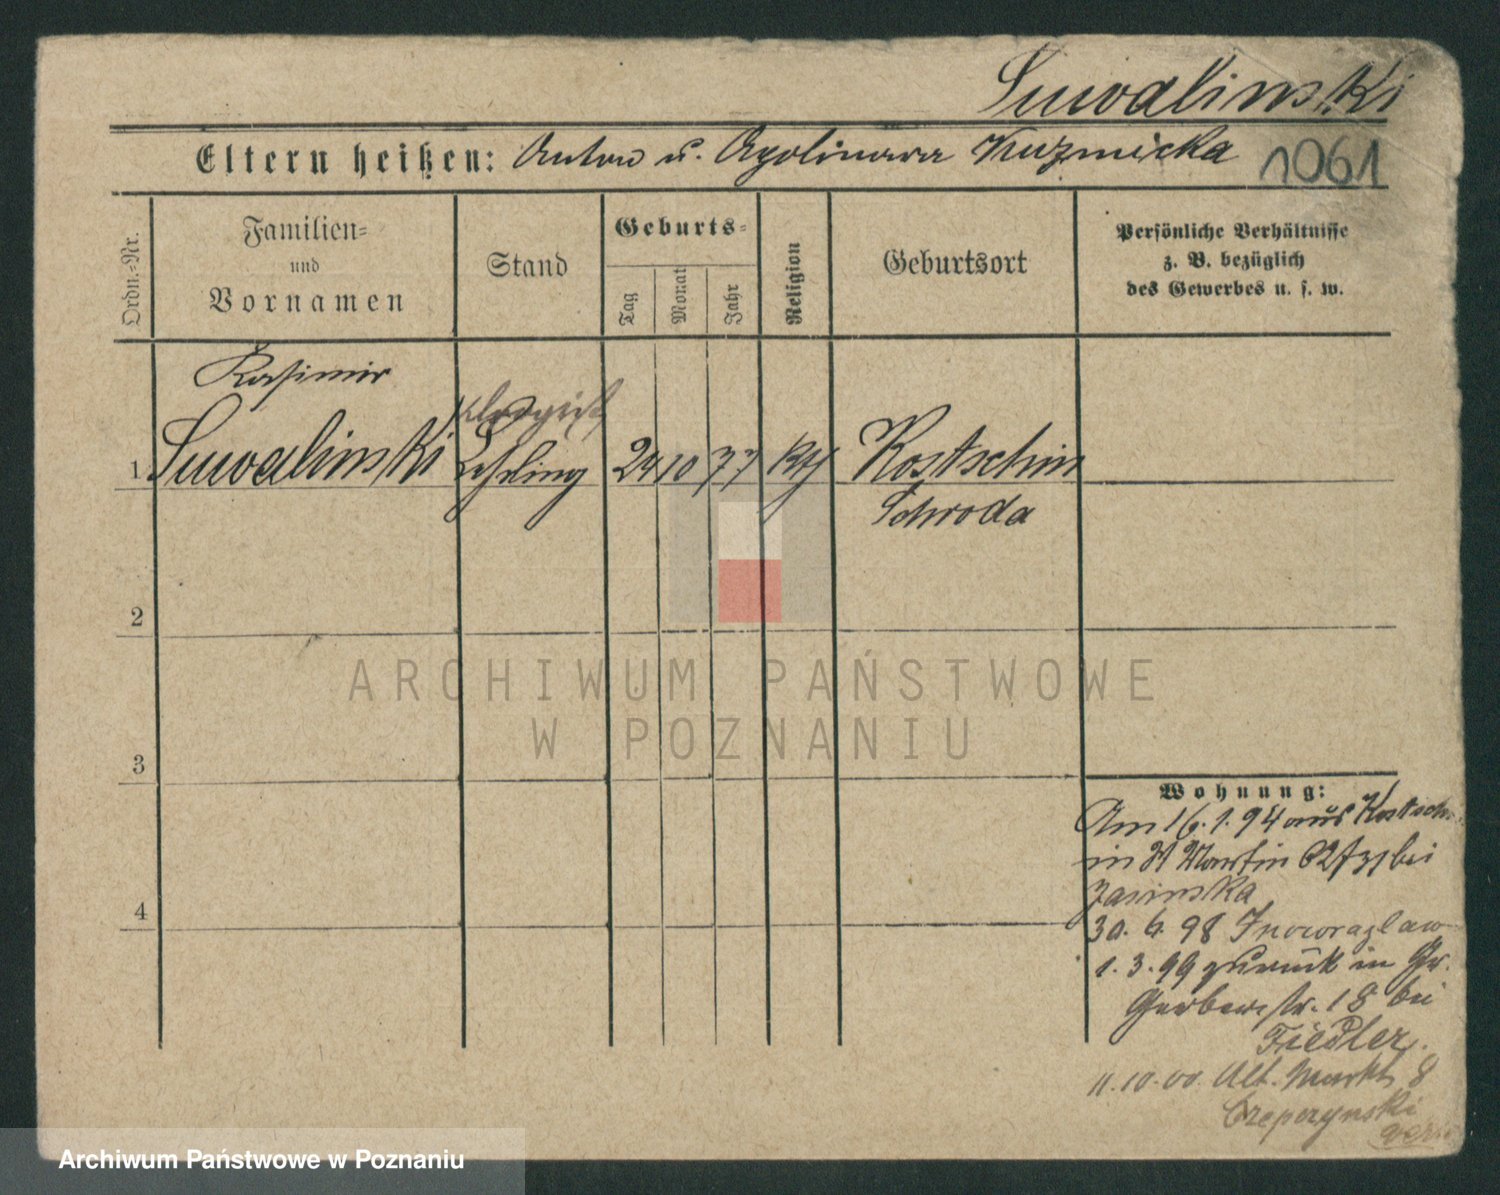 Suwalinski
Eltern heißen: Anton u. Apolinara Kuzmicka 1061
Ordn.=Nr.
Familien=
und
Vornamen
Stand
Geburts=
Tag
Monat
Jahr
Religion
Geburtsort
Persönliche Verhältnisse
z. B. bezüglich
des Gewerbes u. s. w.
Kasimir
1. Suwalinski Lehrling 24 10 77 kth Kostschin
Schroda
2
3
4
Wohnung:
Am 16.1.94 aus Kostsch
in St Martin bei
30. 6. 98 Inowrazlaw
1. 3. 99 zurück in Gr.
Gerberstr. 18 bei
Fiedler.
11.10.00. Alt. Markt 8
Czepczynski
ARCHIWUM PAŃSTWOWE
W POZNANIU
Archiwum Państwowe w Poznaniu